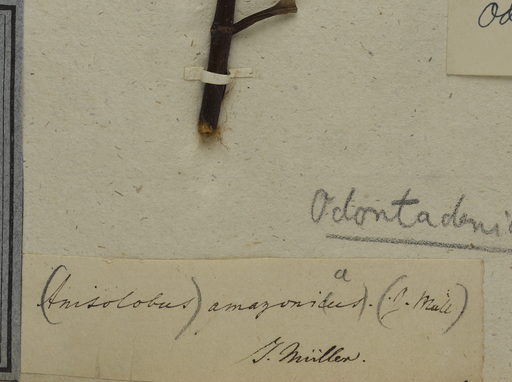 Od
Odontadeni
(Anisolobus) amazonicus a). (J. Müll)
J. Müller.